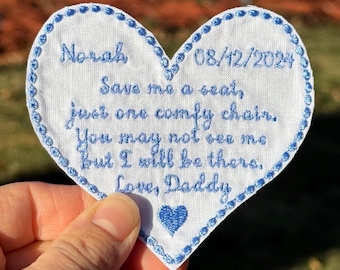 Norah 08/12/2024
Save me a seat,
just one comfy chair.
You may not see me
but I will be there.
Love, Daddy